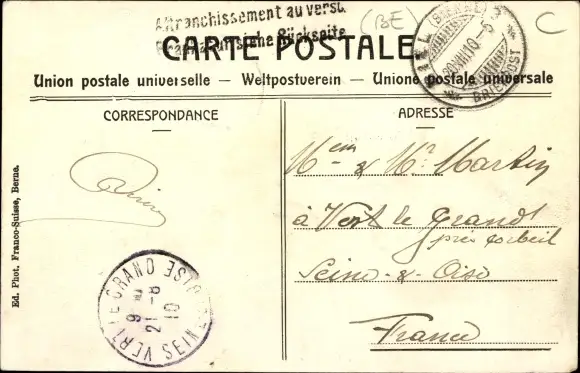 Affranchissement au verso.
Frankatur siehe Rückseite
(BE)
C
CARTE POSTALE
BIEL (BIENNE) 3
20.VIII.10-5
BRIEFPOST
Union postale universelle — Weltpostverein — Unione postale universale
CORRESPONDANCE
ADRESSE
Mem & Mr Martin
à Vert le Grand
près Corbeil
Seine-&-Oise
France
Ed. Phot. Franco-Suisse, Berne.
VERT LE GRAND SEINE ET OISE
21-8
10